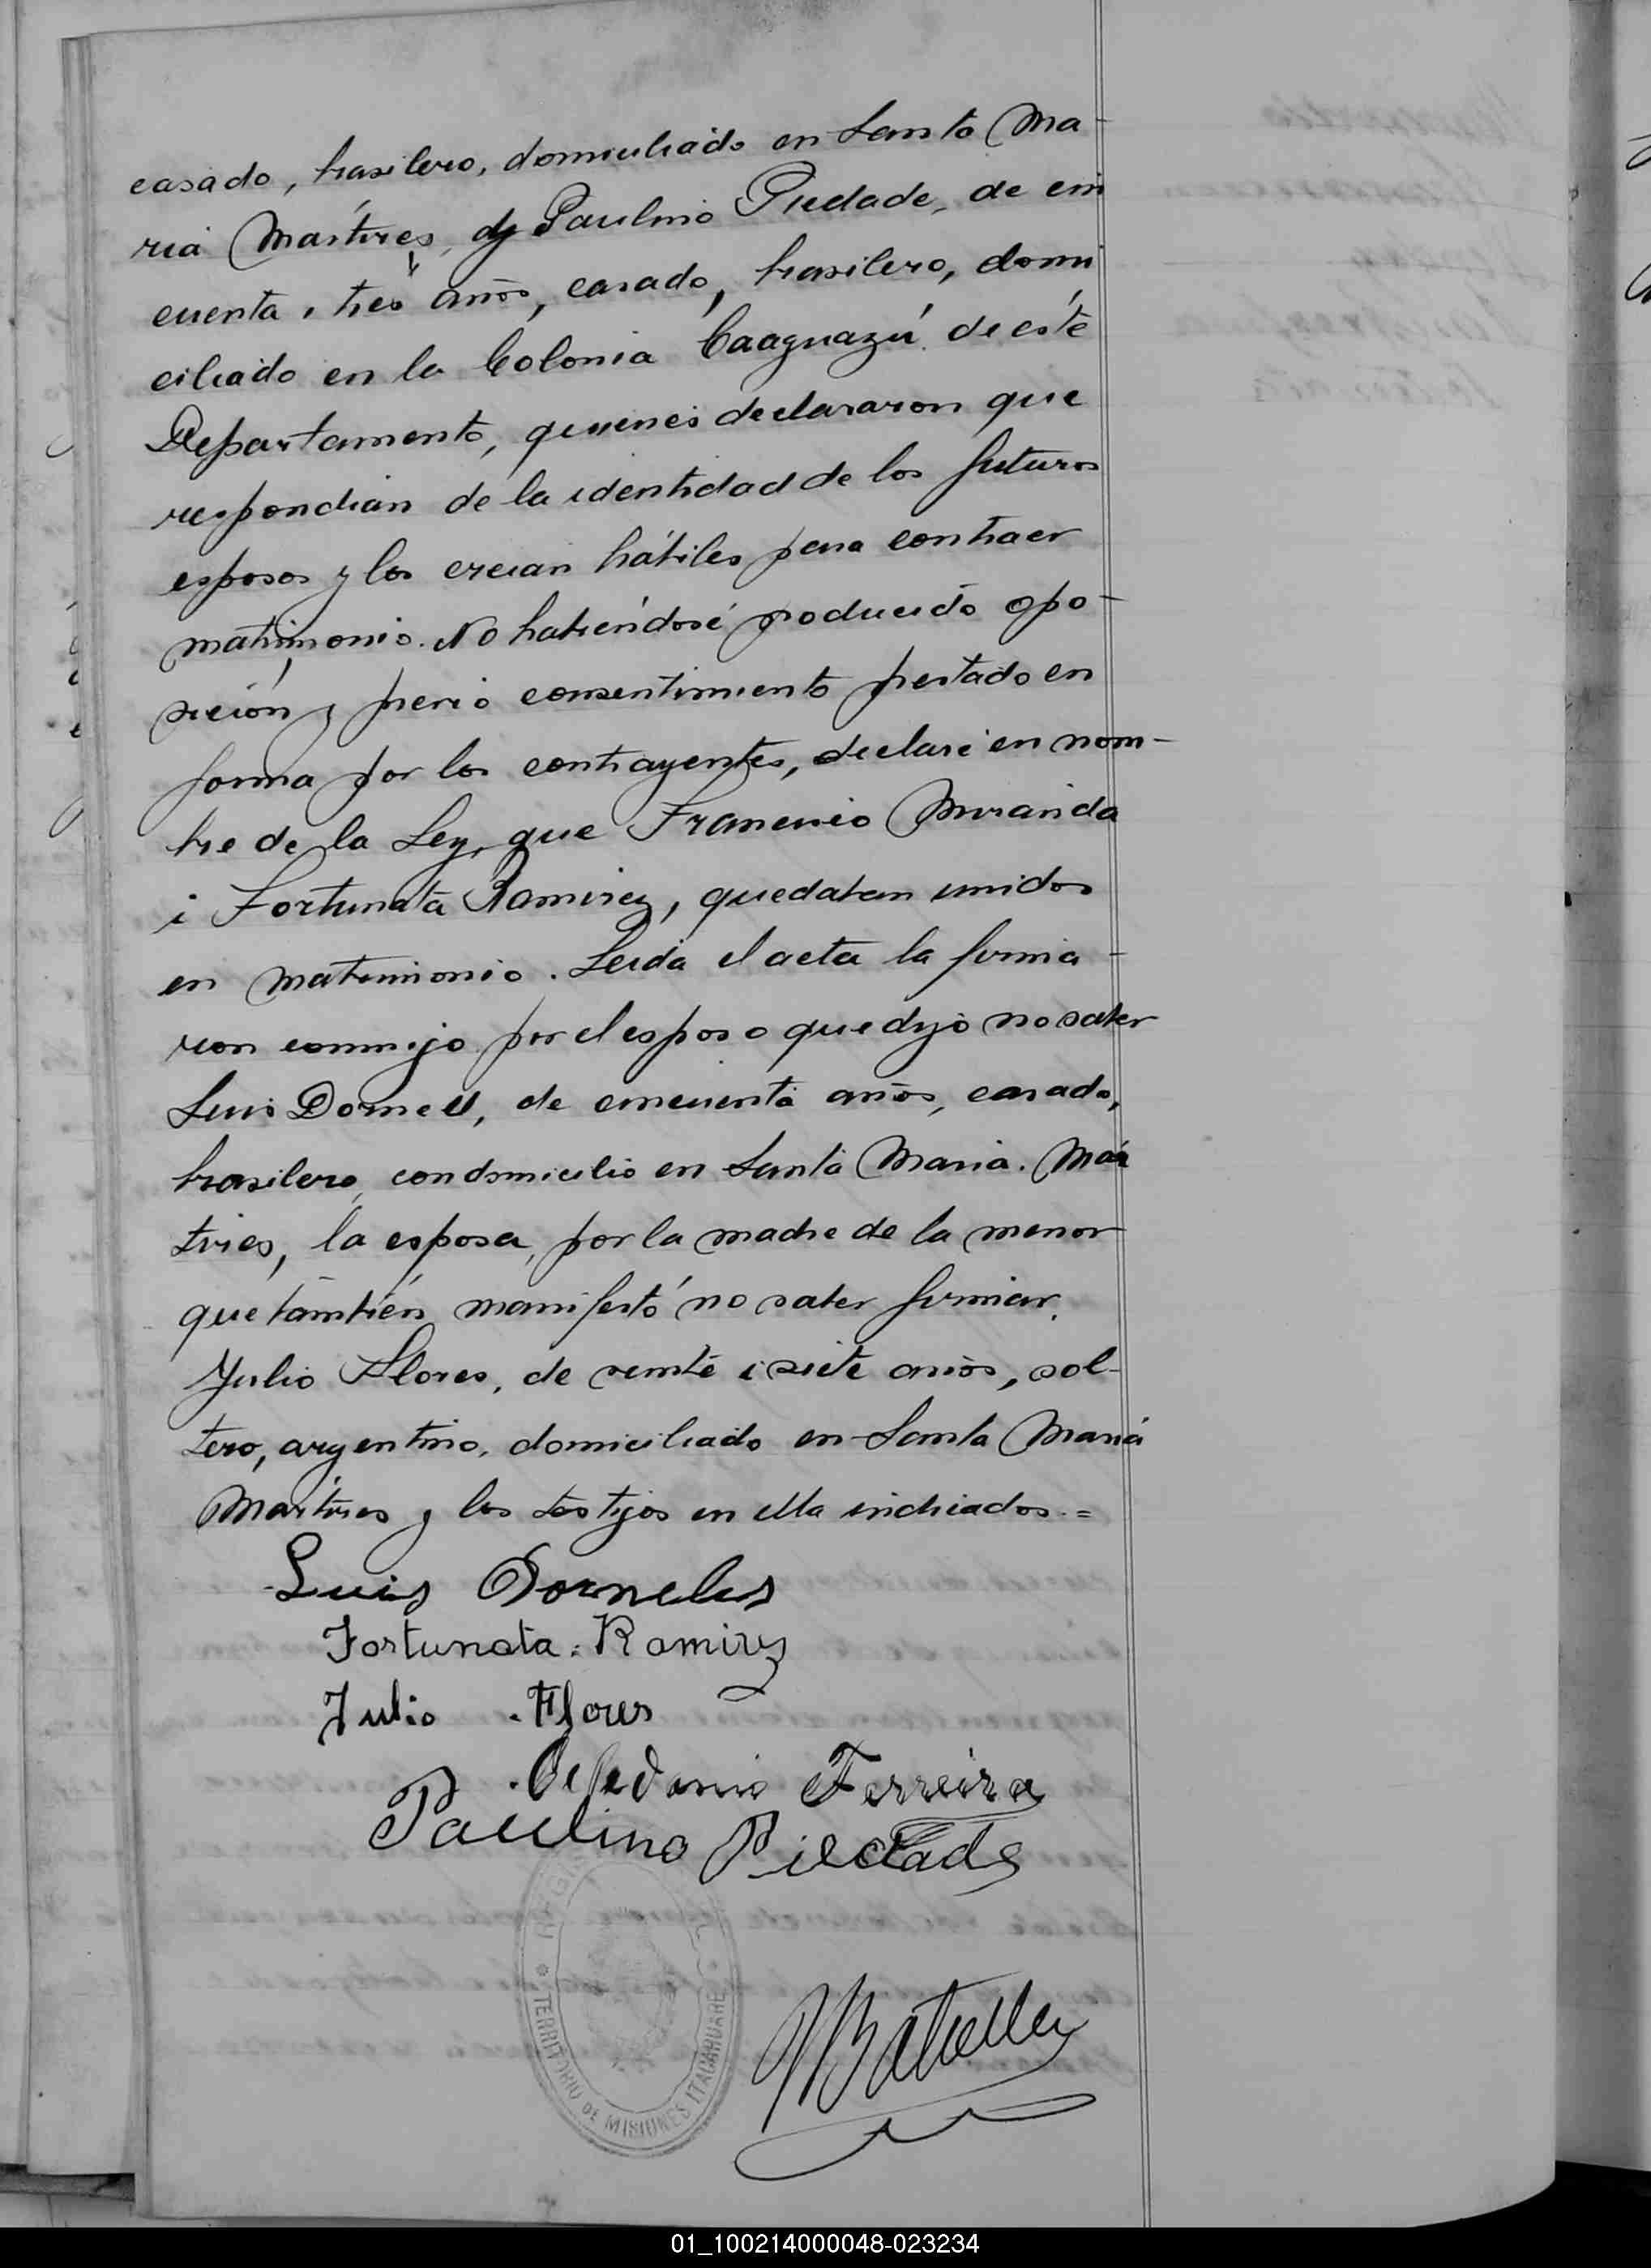 casado, brasilero, domiciliado en Santa Ma-
ria Mártires, y Paulino Piedade, de cin
cuenta i tres años, casado, brasilero, domi
ciliado en la Colonia Caaguazú de éste
Departamento, quienes declararon que
respondian de la identidad de los futuros
esposos y los creian hábiles para contraer
matrimonio. No habiéndosé producido opo-
sición, y previo consentimiento prestado en
forma por los contrayentes, declaré en nom-
bre de la Ley, que Francisco Miranda
i Fortunata Ramirez, quedaban unidos
en matrimonio. Leida el acta la firma-
ron conmigo por el esposo que dijo no saber
Luis Dornel, de cincuenta años, casado,
brasilero, con domicilio en Santa Maria. Már
tires, la esposa, por la madre de la menor
que también manifestó no saber firmar.
Julio Flores, de veinte i siete anos, sol-
tero, argentino, domiciliado en Santa Maria
Martires y los testijos en ella indicados.=
Luis Dorneles
Fortunata. Ramirez
Julio . Flores
Celedonio Ferreira
Paulino Piedade
TERRITORIO DE MISIONES ITACARUARE
01_100214000048-023234